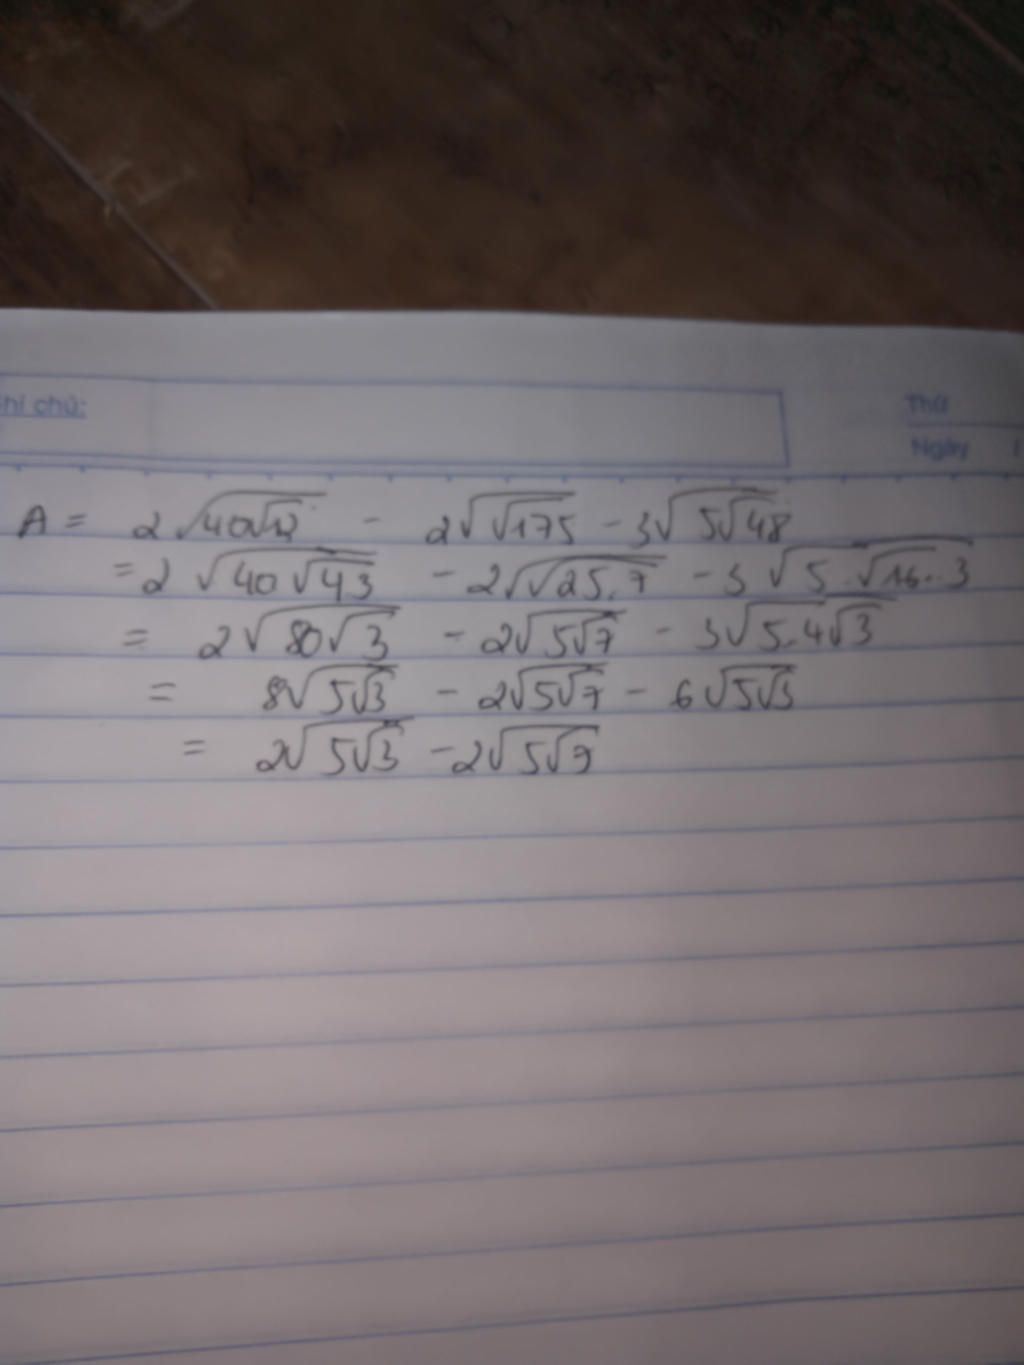 Ghi chú:
Thứ
Ngày /
A = 2√(40√12) - 2√(√175) - 3√(5√48)
= 2√(40√(43)) - 2√(√(25.7)) - 3√(5.√(16.3))
= 2√(80√3) - 2√(5√7) - 3√(5.4√3)
= 8√(5√3) - 2√(5√7) - 6√(5√3)
= 2√(5√3) - 2√(5√7)